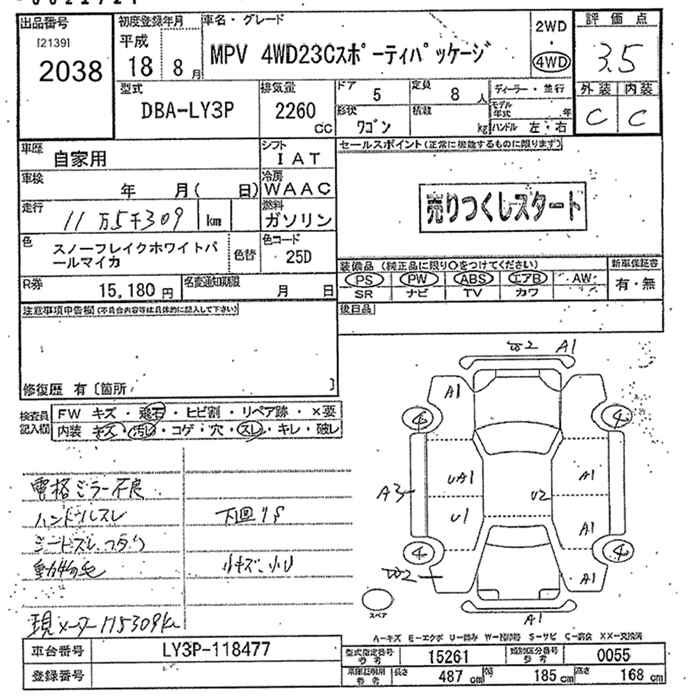 出品番号
[2139]
2038
初度登録年月
平成
18 8月
車名・グレード
MPV 4WD23Cスポーティパッケージ
2WD
・
4WD
評価点
3.5
外装 内装
C C
型式
DBA-LY3P
排気量
2260
cc
ドア
5
定員
8 人
ディーラー・並行
形状
ワゴン
積載
kg
モデル年式 年
ハンドル 左・右
車歴
自家用
シフト
IAT
セールスポイント(正常に機能するものに限ります)
車検
年 月( 日)
冷房
WAAC
売りつくしスタート
走行
11万5千309 km
燃料
ガソリン
色
スノーフレイクホワイトパールマイカ
色替
色コード
25D
装備品(純正品に限り○をつけてください)
新車保証書
PS PW ABS エアB AW
SR ナビ TV カワ
有・無
R券
15,180円
名変通知期限
月 日
後日品
注意事項申告欄(不具合内容等は具体的に記入して下さい)
修復歴 有〔箇所 〕
検査員記入欄
FW キズ・飛石・ヒビ割・リペア跡・×要
内装 キズ・汚れ・コゲ・穴・スレ・キレ・破レ
電格ミラー不良
ハンドルスレ
下回りS
動物毛
小キズ、小U
現メーター115309km
W2 A1
A1
6 4
A3 UA1 A1
U2
U1 A1
4 4
W2 A1
A1
スペア
A-キズ E-エクボ U-凹み W-補修跡 S-サビ C-腐食 XX-交換済
車台番号
LY3P-118477
型式指定番号
15261
類別区分番号
0055
登録番号
長さ
487 cm
巾
185 cm
高さ
168 cm